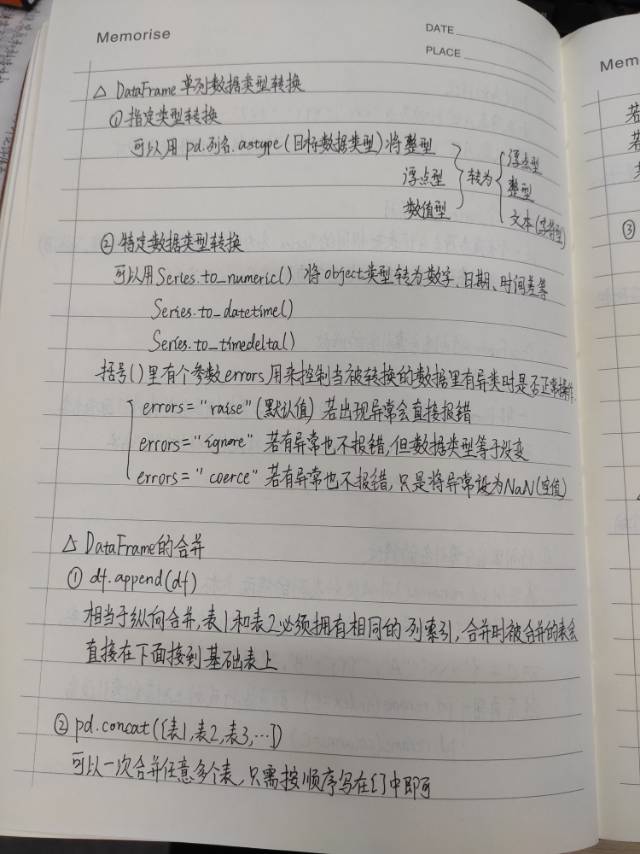 Memorise
DATE
PLACE
△ DataFrame 单列数据类型转换
① 指定类型转换
可以用 pd.列名.astype(目标数据类型)将整型
浮点型
数值型
转为
浮点型
整型
文本(字符型)
② 特定数据类型转换
可以用Series.to_numeric() 将object类型转为数字、日期、时间差等
Series.to_datetime()
Series.to_timedelta()
括号()里有个参数errors用来控制当被转换的数据里有异类时是否正常操作.
errors="raise"(默认值) 若出现异常会直接报错
errors="ignore" 若有异常也不报错,但数据类型等于没变
errors="coerce" 若有异常也不报错,只是将异常设为NaN(空值)
△ DataFrame的合并
① df.append(df)
相当于纵向合并,表1和表2必须拥有相同的列索引,合并时被合并的表会
直接在下面接到基础表上
② pd.concat([表1,表2,表3,…])
可以一次合并任意多个表,只需按顺序写在[]中即可
Mem
若
若
③